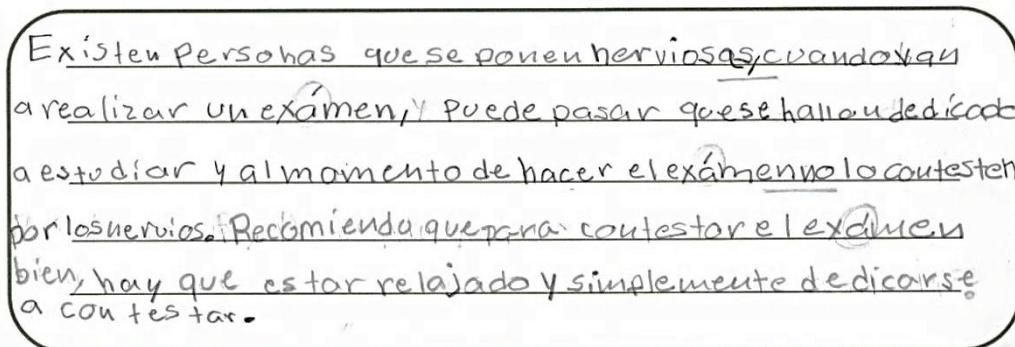 Existen Personas que se ponen nerviosas, cuando van
a realizar un exámen, y puede pasar que se hallan dedicado
a estudiar y al momento de hacer el exámen no lo contesten
por los nervios. Recomienda que para contestar el exámen
bien, hay que estar relajado y simplemente dedicarse
a contestar.